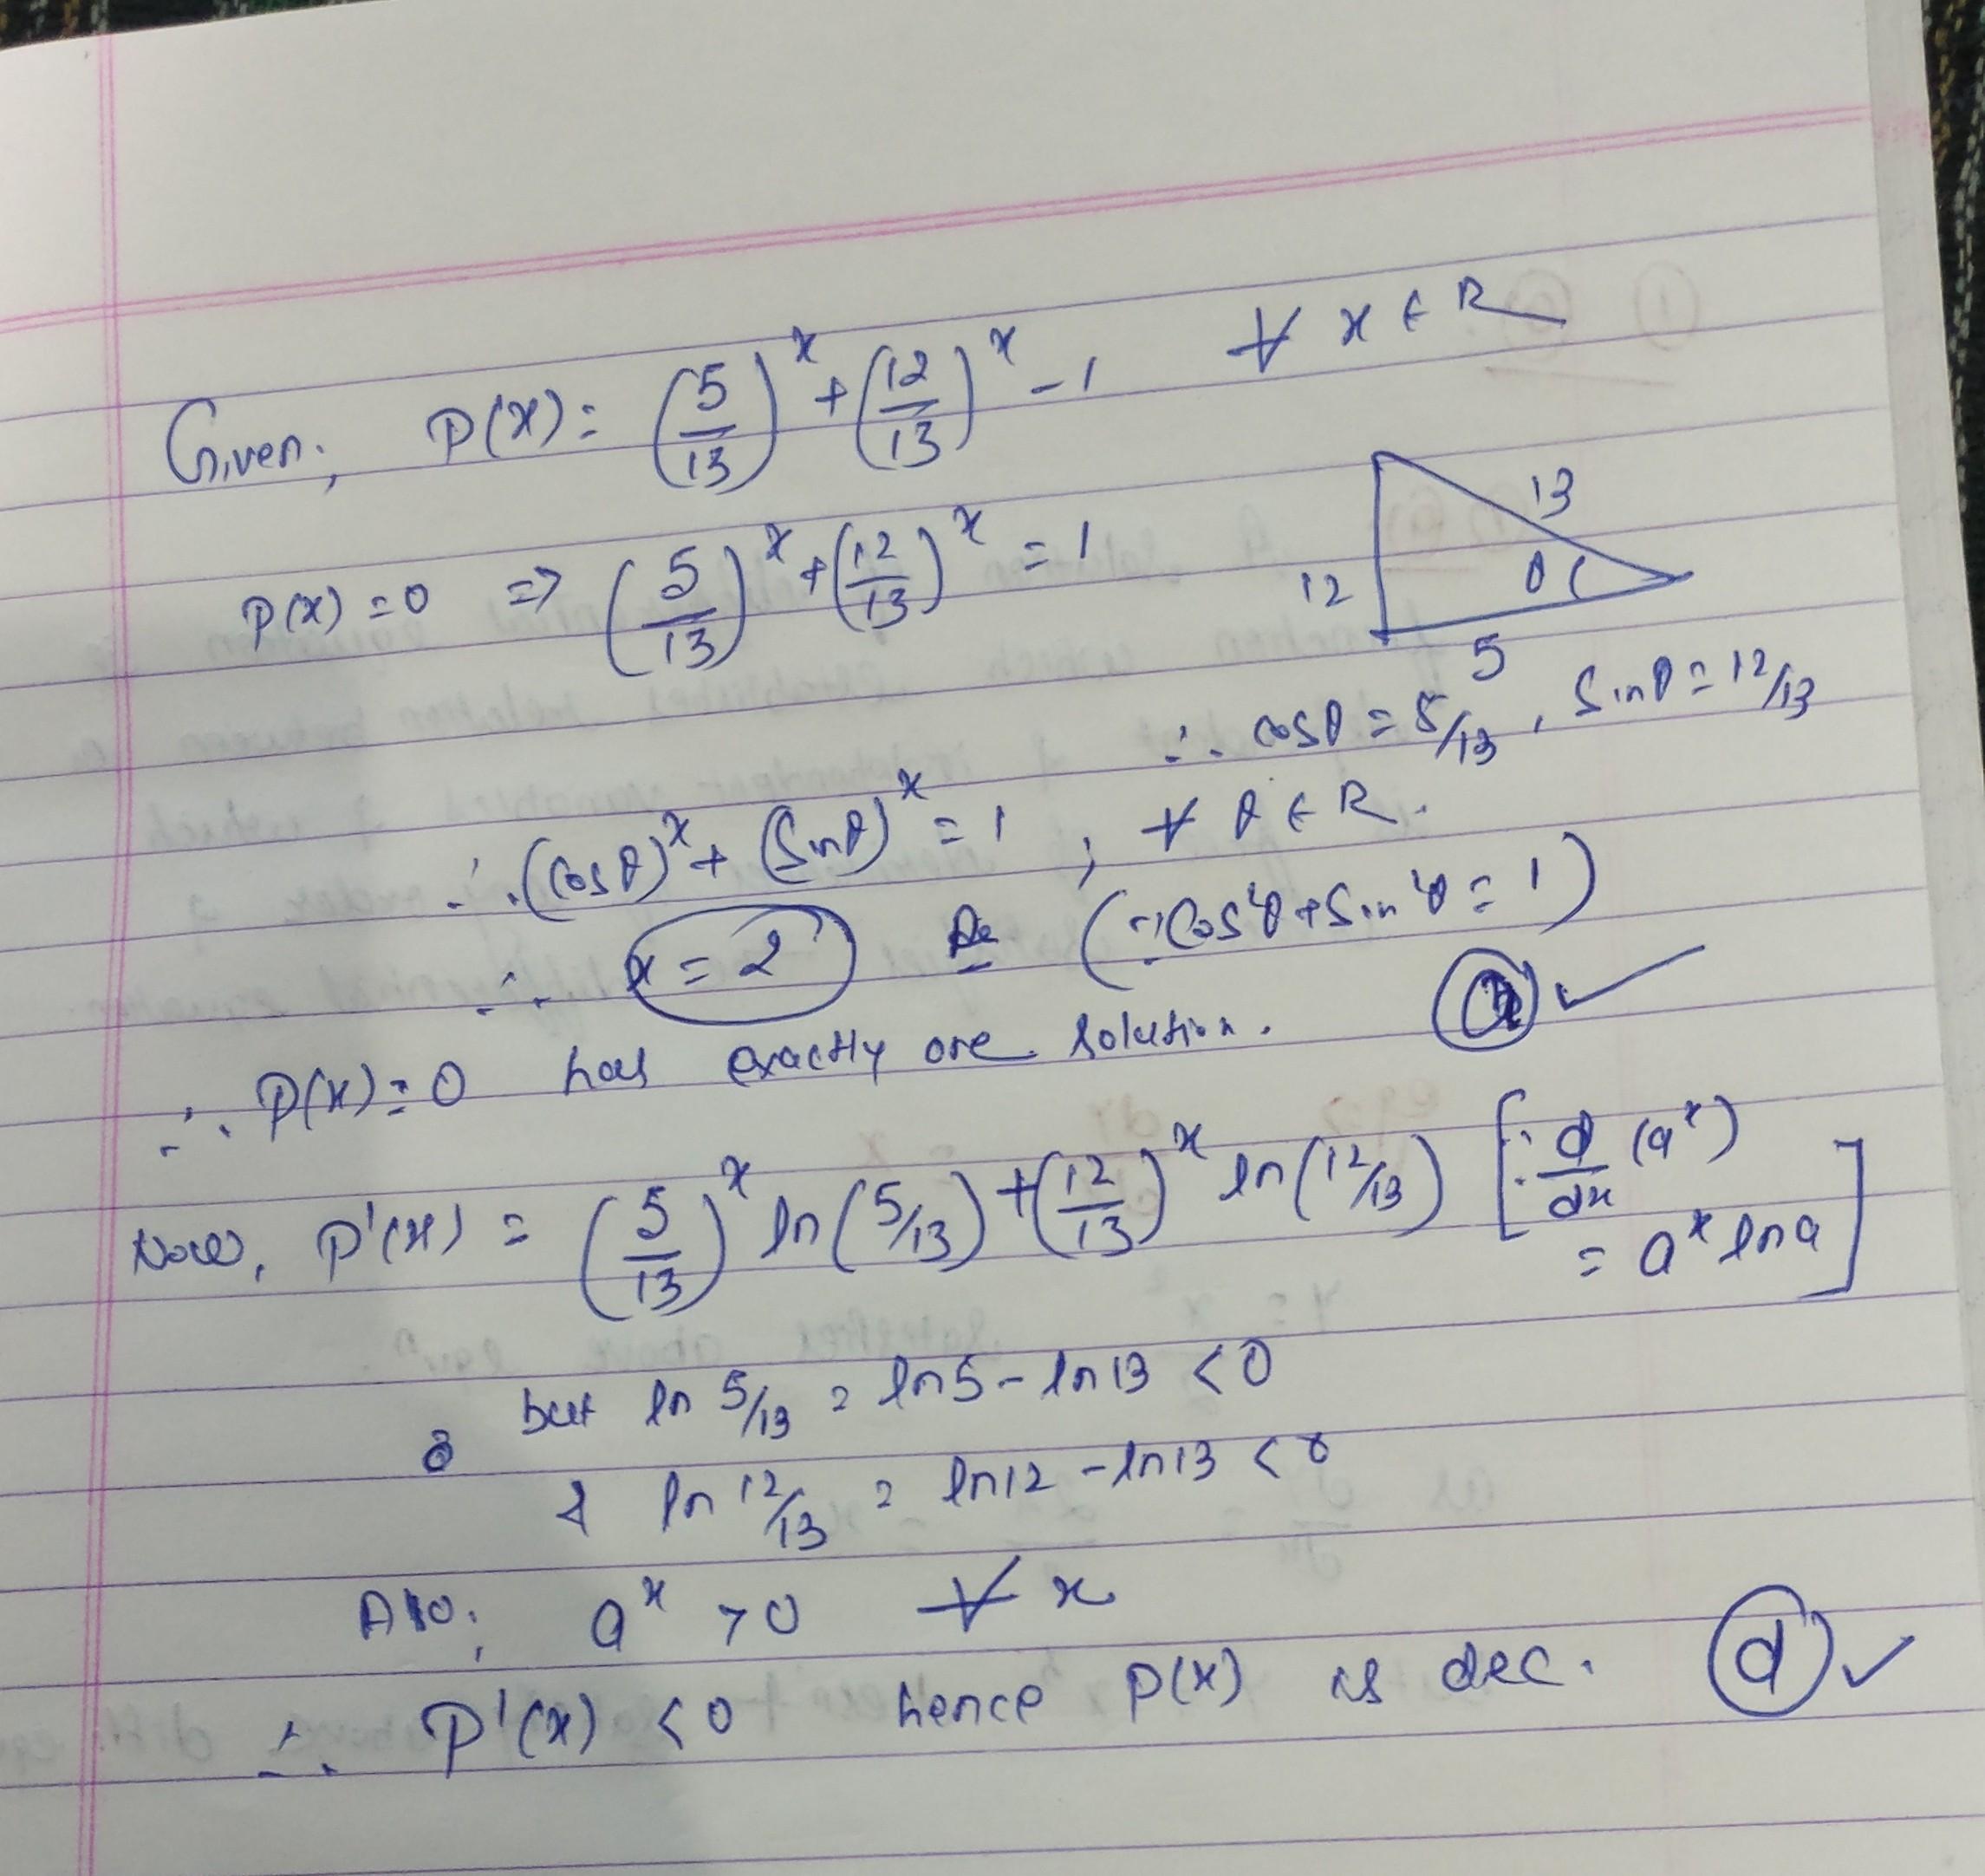 Given; P(x) = (5/13)^x + (12/13)^x - 1, ∀ x ∈ R
P(x) = 0 => (5/13)^x + (12/13)^x = 1
13
12
θ
5
∴ cosθ = 5/13, Sinθ = 12/13
∴ (cosθ)^x + (Sinθ)^x = 1 ; ∀ θ ∈ R.
∴ x = 2 (∵ Cos²θ + Sin²θ = 1)
∴ P(x) = 0 has exactly one solution. ✓
Now, P'(x) = (5/13)^x ln(5/13) + (12/13)^x ln(12/13) [∵ d/dx (a^x)
= a^x ln a]
but ln 5/13 = ln5 - ln13 < 0
& ln 12/13 = ln12 - ln13 < 0
Also; a^x > 0 ∀ x
∴ P'(x) < 0 hence P(x) is dec. (d) ✓